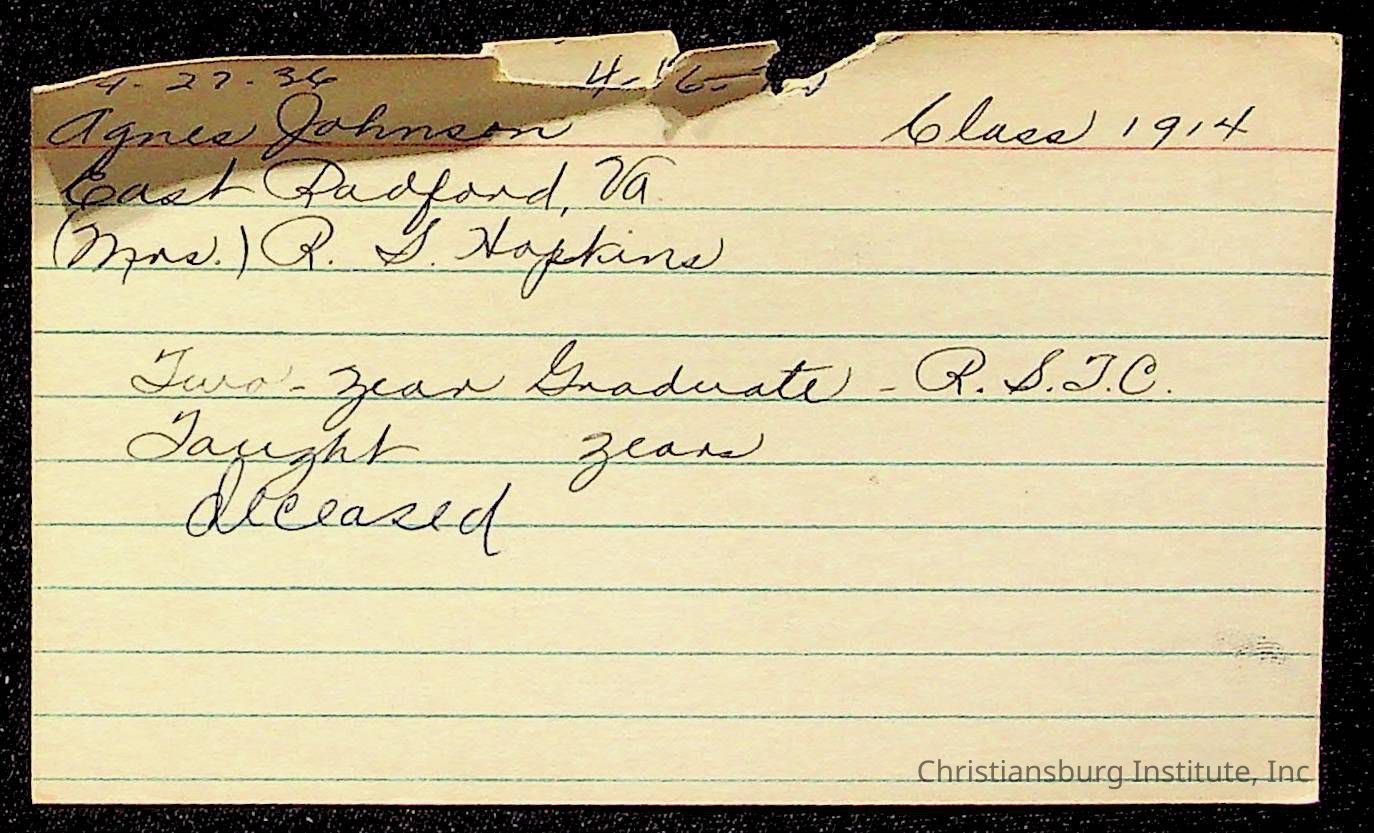 4-27-36 4-16-
Agnes Johnson Class 1914
East Radford, Va.
(Mrs.) R. S. Hopkins
Two-year Graduate - R.S.T.C.
Taught years
deceased
Christiansburg Institute, Inc